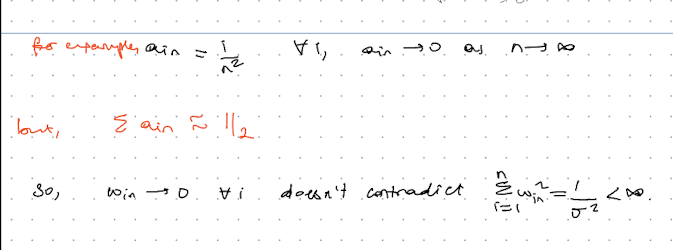 for example, a_in = 1/n² ∀ i, a_in → 0 as n → ∞
but, Σ a_in ≈ 1/2
So, w_in → 0 ∀ i doesn't contradict Σ_{i=1}^{n} w_in² = 1/σ² < ∞.